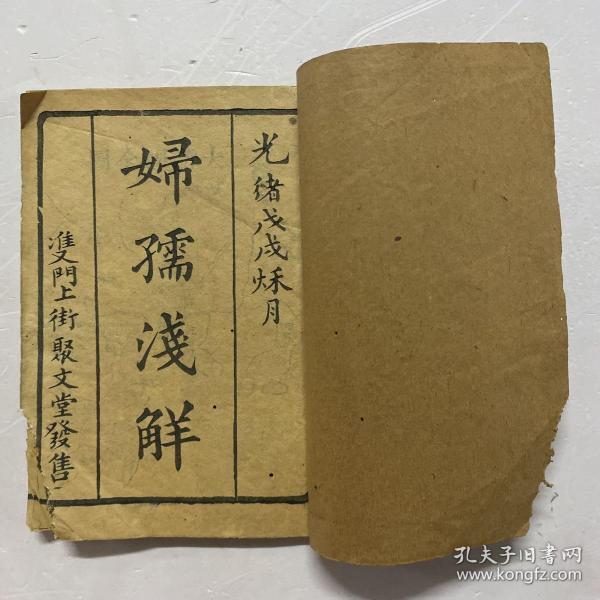 光緖戊戌烁月
婦孺淺觧
雙門上街聚文堂發售
孔夫子旧书网
www.kongfz.com